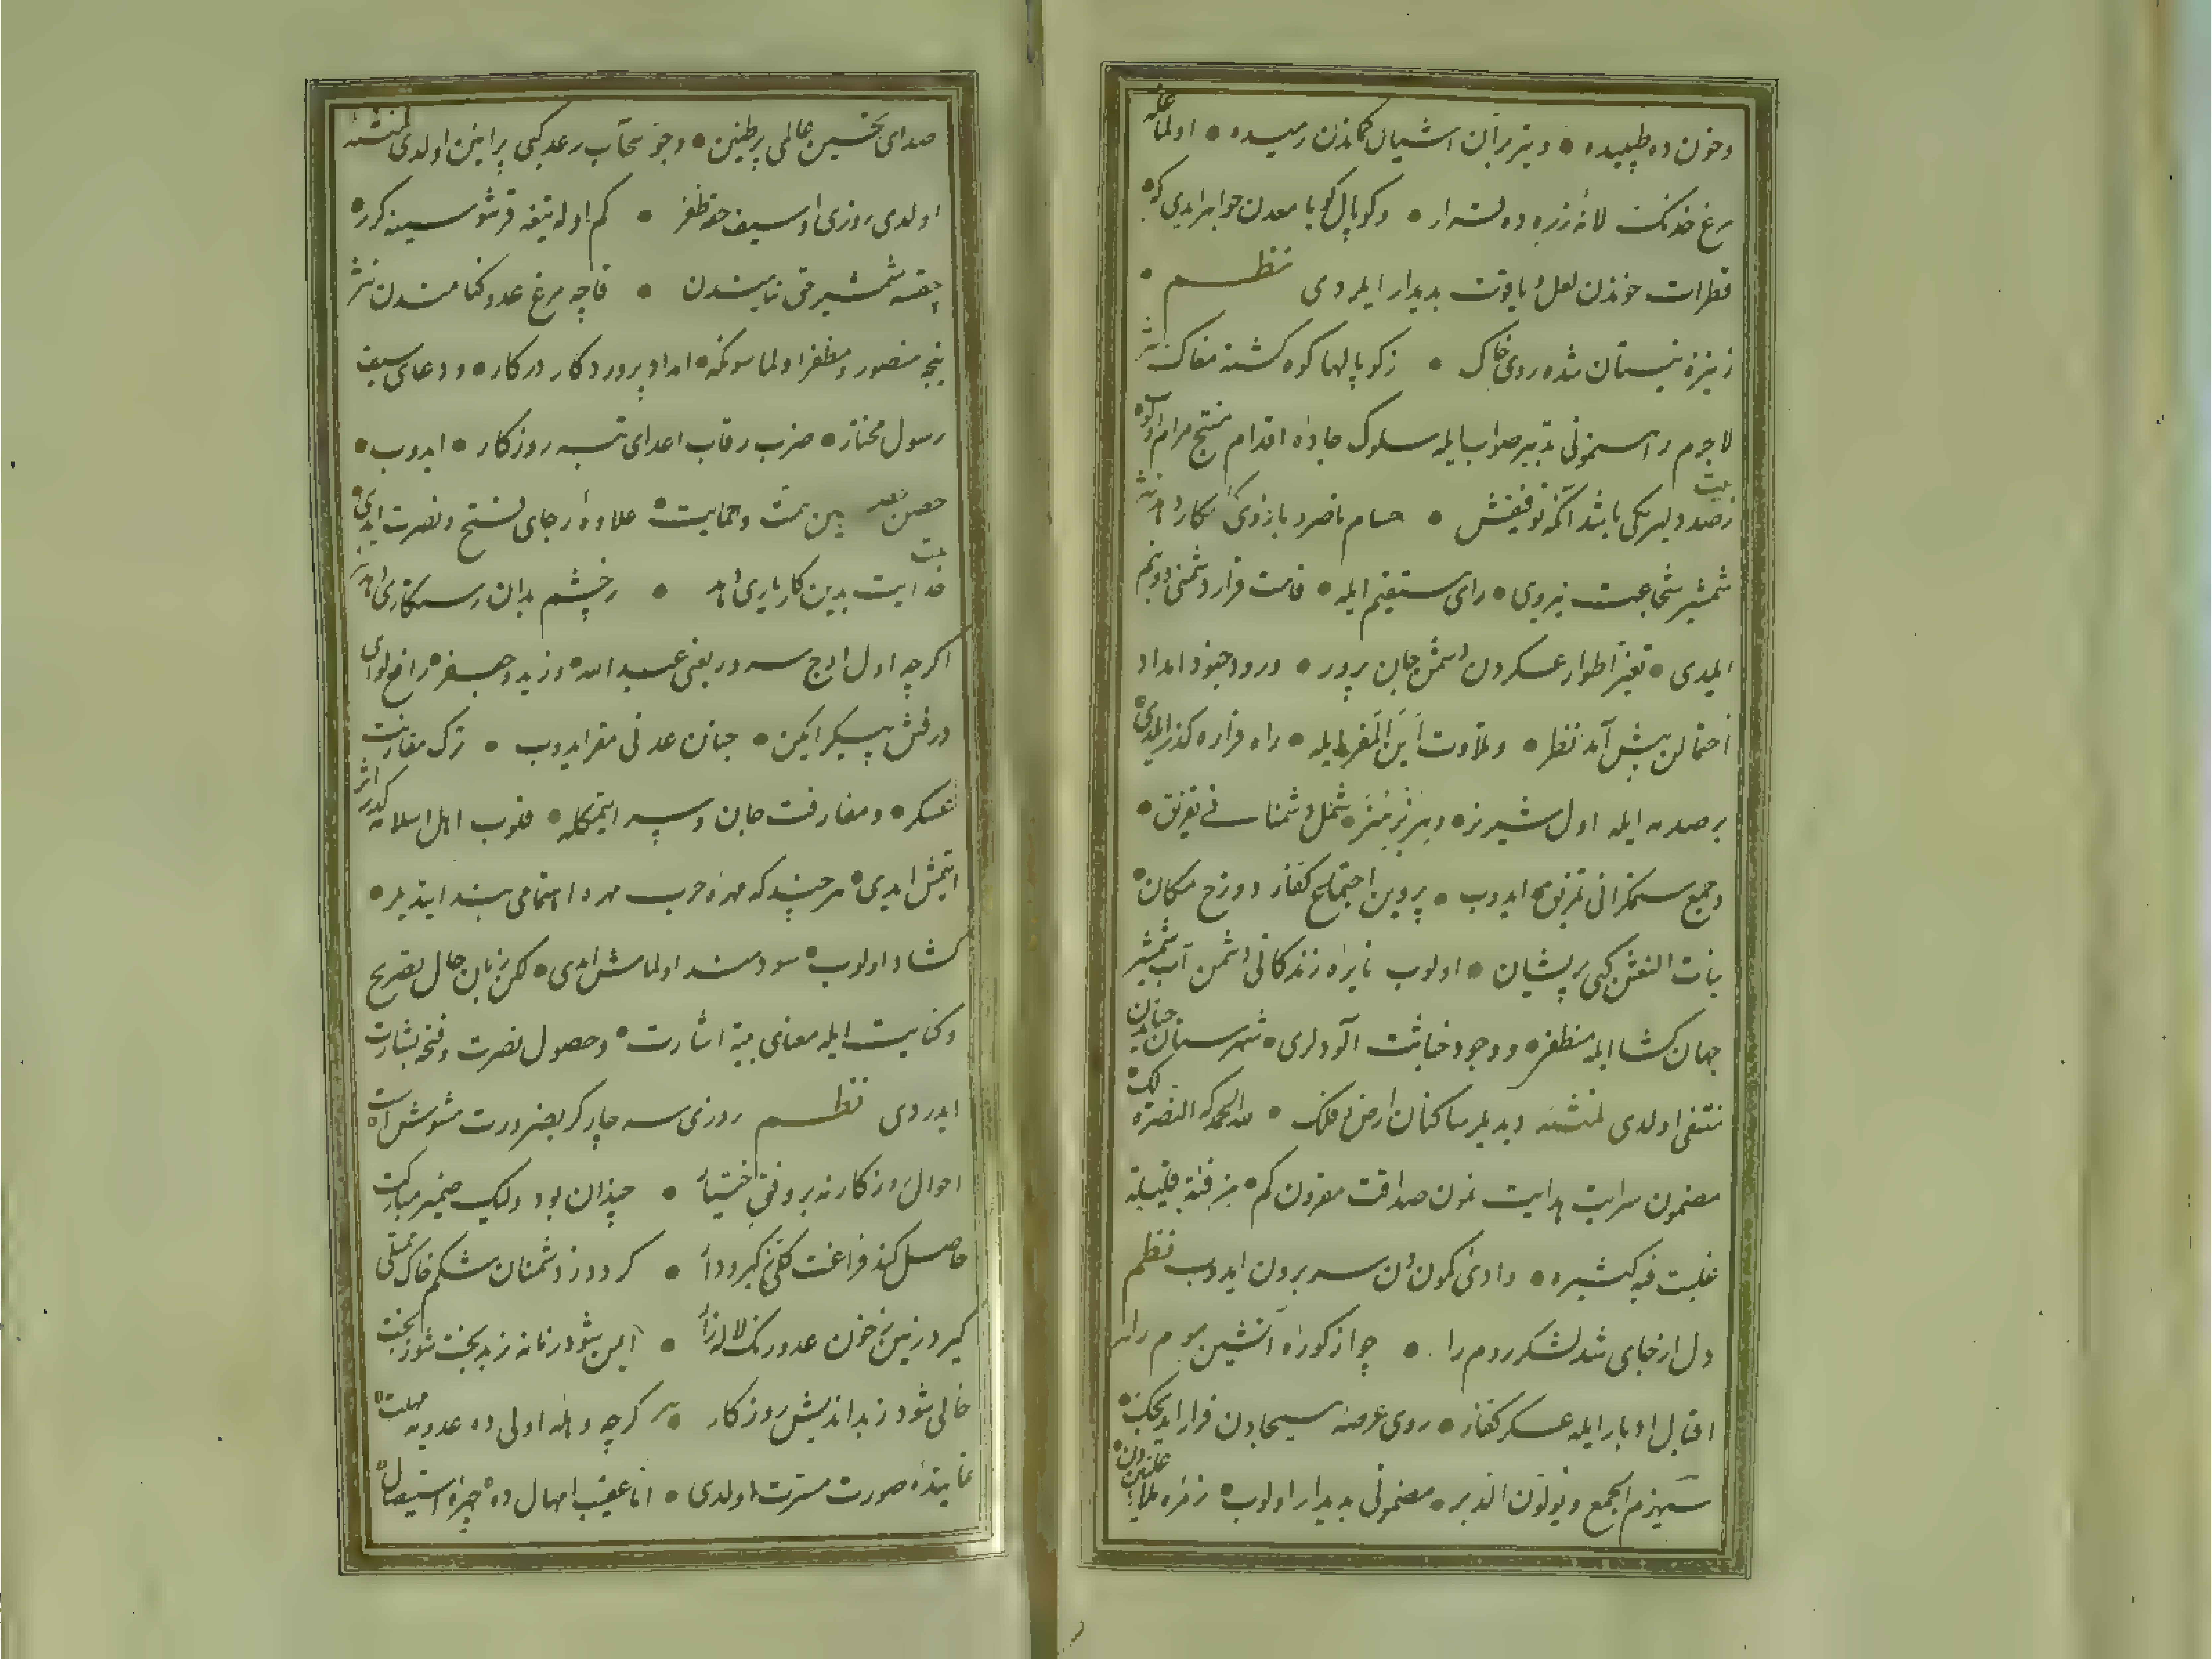 وخون ده طپیده • وتیر بران آشیان کماندن رمیده • اولماغله
مرغ خدنک لانهٔ زره ده استوار • وکوپال کویا معدن جواهر ایدی که
قطرات خوندن لعل و یاقوت بدیدار ایلردی نظم •
زنیزه نیستان شده روی خاک • زکوپالها کوه کشته مغاک نثر
لاجرم راهنمونی تدبیر صواب ایله سلوک جادهٔ اقدام منتج مرام اولوب
بیت
زصد دلیر یکی باشد آنکه توفیقش • حسام ناصر و بازوی کامکار دهد نثر
شمشیر شجاعت نیروی • رای مستقیم ایله • قامت قرار دشمنی دونیم
ایلدی • تغیر اطوار عسکردن دشمن جان پرور • ورود جنود امداد
احتمالن پیش آمد نظر • وتلاوت این المفر ایله • راه فراره کذر ایلدی
برصدمه ایله اول شیر نر • وهزبر هنر • شمل دشمنانی تفریق •
وجمع ستمکرانی تمزیق ایدوب • پروین اجتماع کفار دوزخ مکان
بنات النعش کبی پریشان • اولوب نایرهٔ زندکانی دشمن آب شمشیر
جهان کشا ایله منطفی • و وجود خباثت آلودلری • شهرستان جهاندن
منتفی اولدی لمنشئه دیدیلر ساکنان ارض و فلک • لله الحمد که النصرة لک
مضمون سرایت هدایت نمون صداقت مقرون کم من فئة قلیلة
غلبت فئة کثیره • وادئ کموندن سر برون ایدوب نظم
دل از جای شد لشکر روم را • چو از کورهٔ آتشین موم را نثر
اقبال ادبار ایله عسکر کفار • روی عرصهٔ هیجادن فرار ایدیجک
سیهزم الجمع ویولون الدبر • مضمونی بدیدار اولوب • زمرهٔ ملاء علیین دن
صدای تحسین عالمی پرطنین • وجو سحاب رعد کبی پر انین اولدی لمنشئه
اولدی روزی او سیف حق ظفر • کم اوله تیغه قرشو سینه کرر
چقسه شمشیر حق نیامندن • قاچه مرغ عدو کنامندن نثر
نیجه منصور و مظفر اولماسونکه • امداد پروردکار درکار • و دعای سیف
رسول مختار • ضرب رقاب اعدای تبه روزکار • ایدوب •
حصن همت وحمایت علاوهٔ رجای فتح ونصرت ایدی
بیت
خدایت بدین کار یاری دهد • زچشم بدان رستکاری دهد نثر
اکرچه اول اوج سرور یعنی عبد الله • وزید وجعفر • رافع لوای
درفش پیکر ایکن • جنان عدنی مقر ایدوب • ترک مقارنت
عسکر • ومفارقت جان وسر ایتمکله • قلوب اهل اسلامه کدر اثر
ایتمش ایدی • هرچند که مهرهٔ حرب مهره اهتمامی بند ایتدیلر •
کشاد اولوب • سودمند اولمامش ایدی • لکن زبان حال تصریح
وکنایت ایله معنای بینه اشارت • وحصول نصرت وفتحه بشارت
ایدردی نظم روزی سه چار کر بضرورت مشوش است
احوال روزکار نه بر وفق اختیار • چندان بود ولیک ضمیر مبارکت
حاصل کند فراغت کلی ز کیر و دار • کردد ز دشمنان شکم خاک ممتلی
کیرد زمین زخون عدو رنک لاله زار • ایمن شود زمانه ز بدبخت شوربخت
خالی شود ز بداندیش روزکار نثر • کرچه وهله اولی ده عدویه مهلت
نمایندهٔ صورت مسرت اولدی • اما عقیب امهال ده • چهرهٔ استیصال